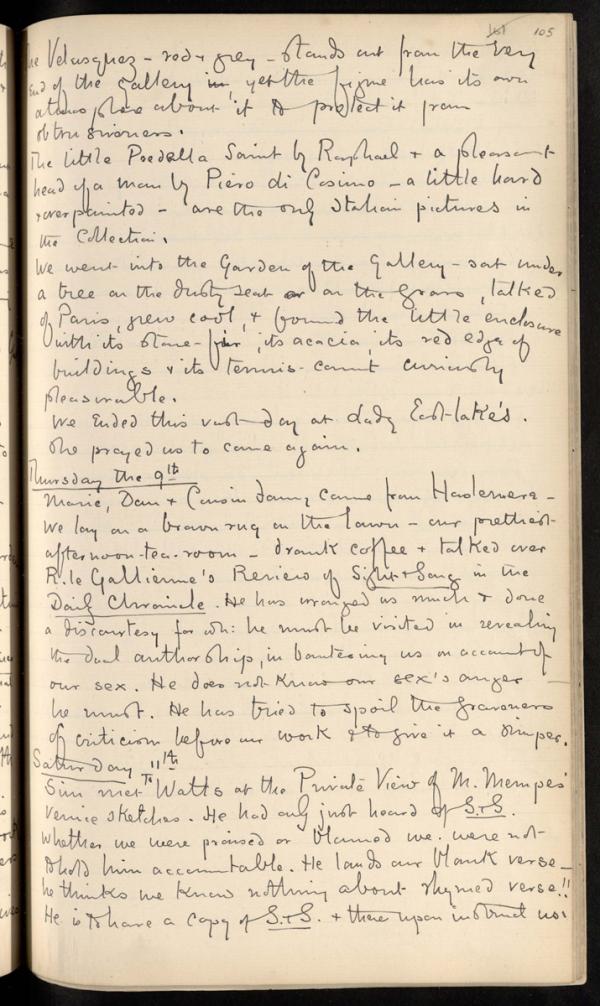 105
The Velasquez – red & grey – stands out from the very
end of the gallery in, yet the figure has its own
atmosphere about it to protect it from
obtrusiveness.
The little Predella Saint by Raphael & a pleasant
head of a man by Piero di Cosimo – a little hard
& overpainted – are the only Italian pictures in
the Collection.
We went into the Garden of the Gallery – sat under
a tree on the dusty seat or on the grass, talked
of Paris, grew cool, & found the little enclosure
with its stone-fir, its acacia, its red edge of
buildings & its tennis-court curiously
pleasurable.
We ended this vast day at Lady Eastlake's.
She prayed us to come again.
Thursday the 9th
Marie, Dan & Cousin Fanny came from Haslemere –
We lay on a brown rug on the lawn – our prettiest
afternoon-tea-room – drank coffee & talked over
R. le Gallienne's Review of Sight & Song in the
Daily Chronicle. He has wronged us much & done
a discourtesy for wh: he must be visited in revealing
the dual authorship, in bantering us on account of
our sex. He does not know our sex's anger –
he must. He has tried to spoil the graveness
of criticism before our work & to give it a simper.
Saturday 11th
Sim met Watts at the Private View of M. Mempes'
Venice sketches. He had only just heard of S. & S.
Whether we were praised or blamed we were not
to hold him accountable. He lauds our blank verse –
he thinks we know nothing about rhymed verse!!
He is to have a copy of S. & S. & thereupon instruct us.